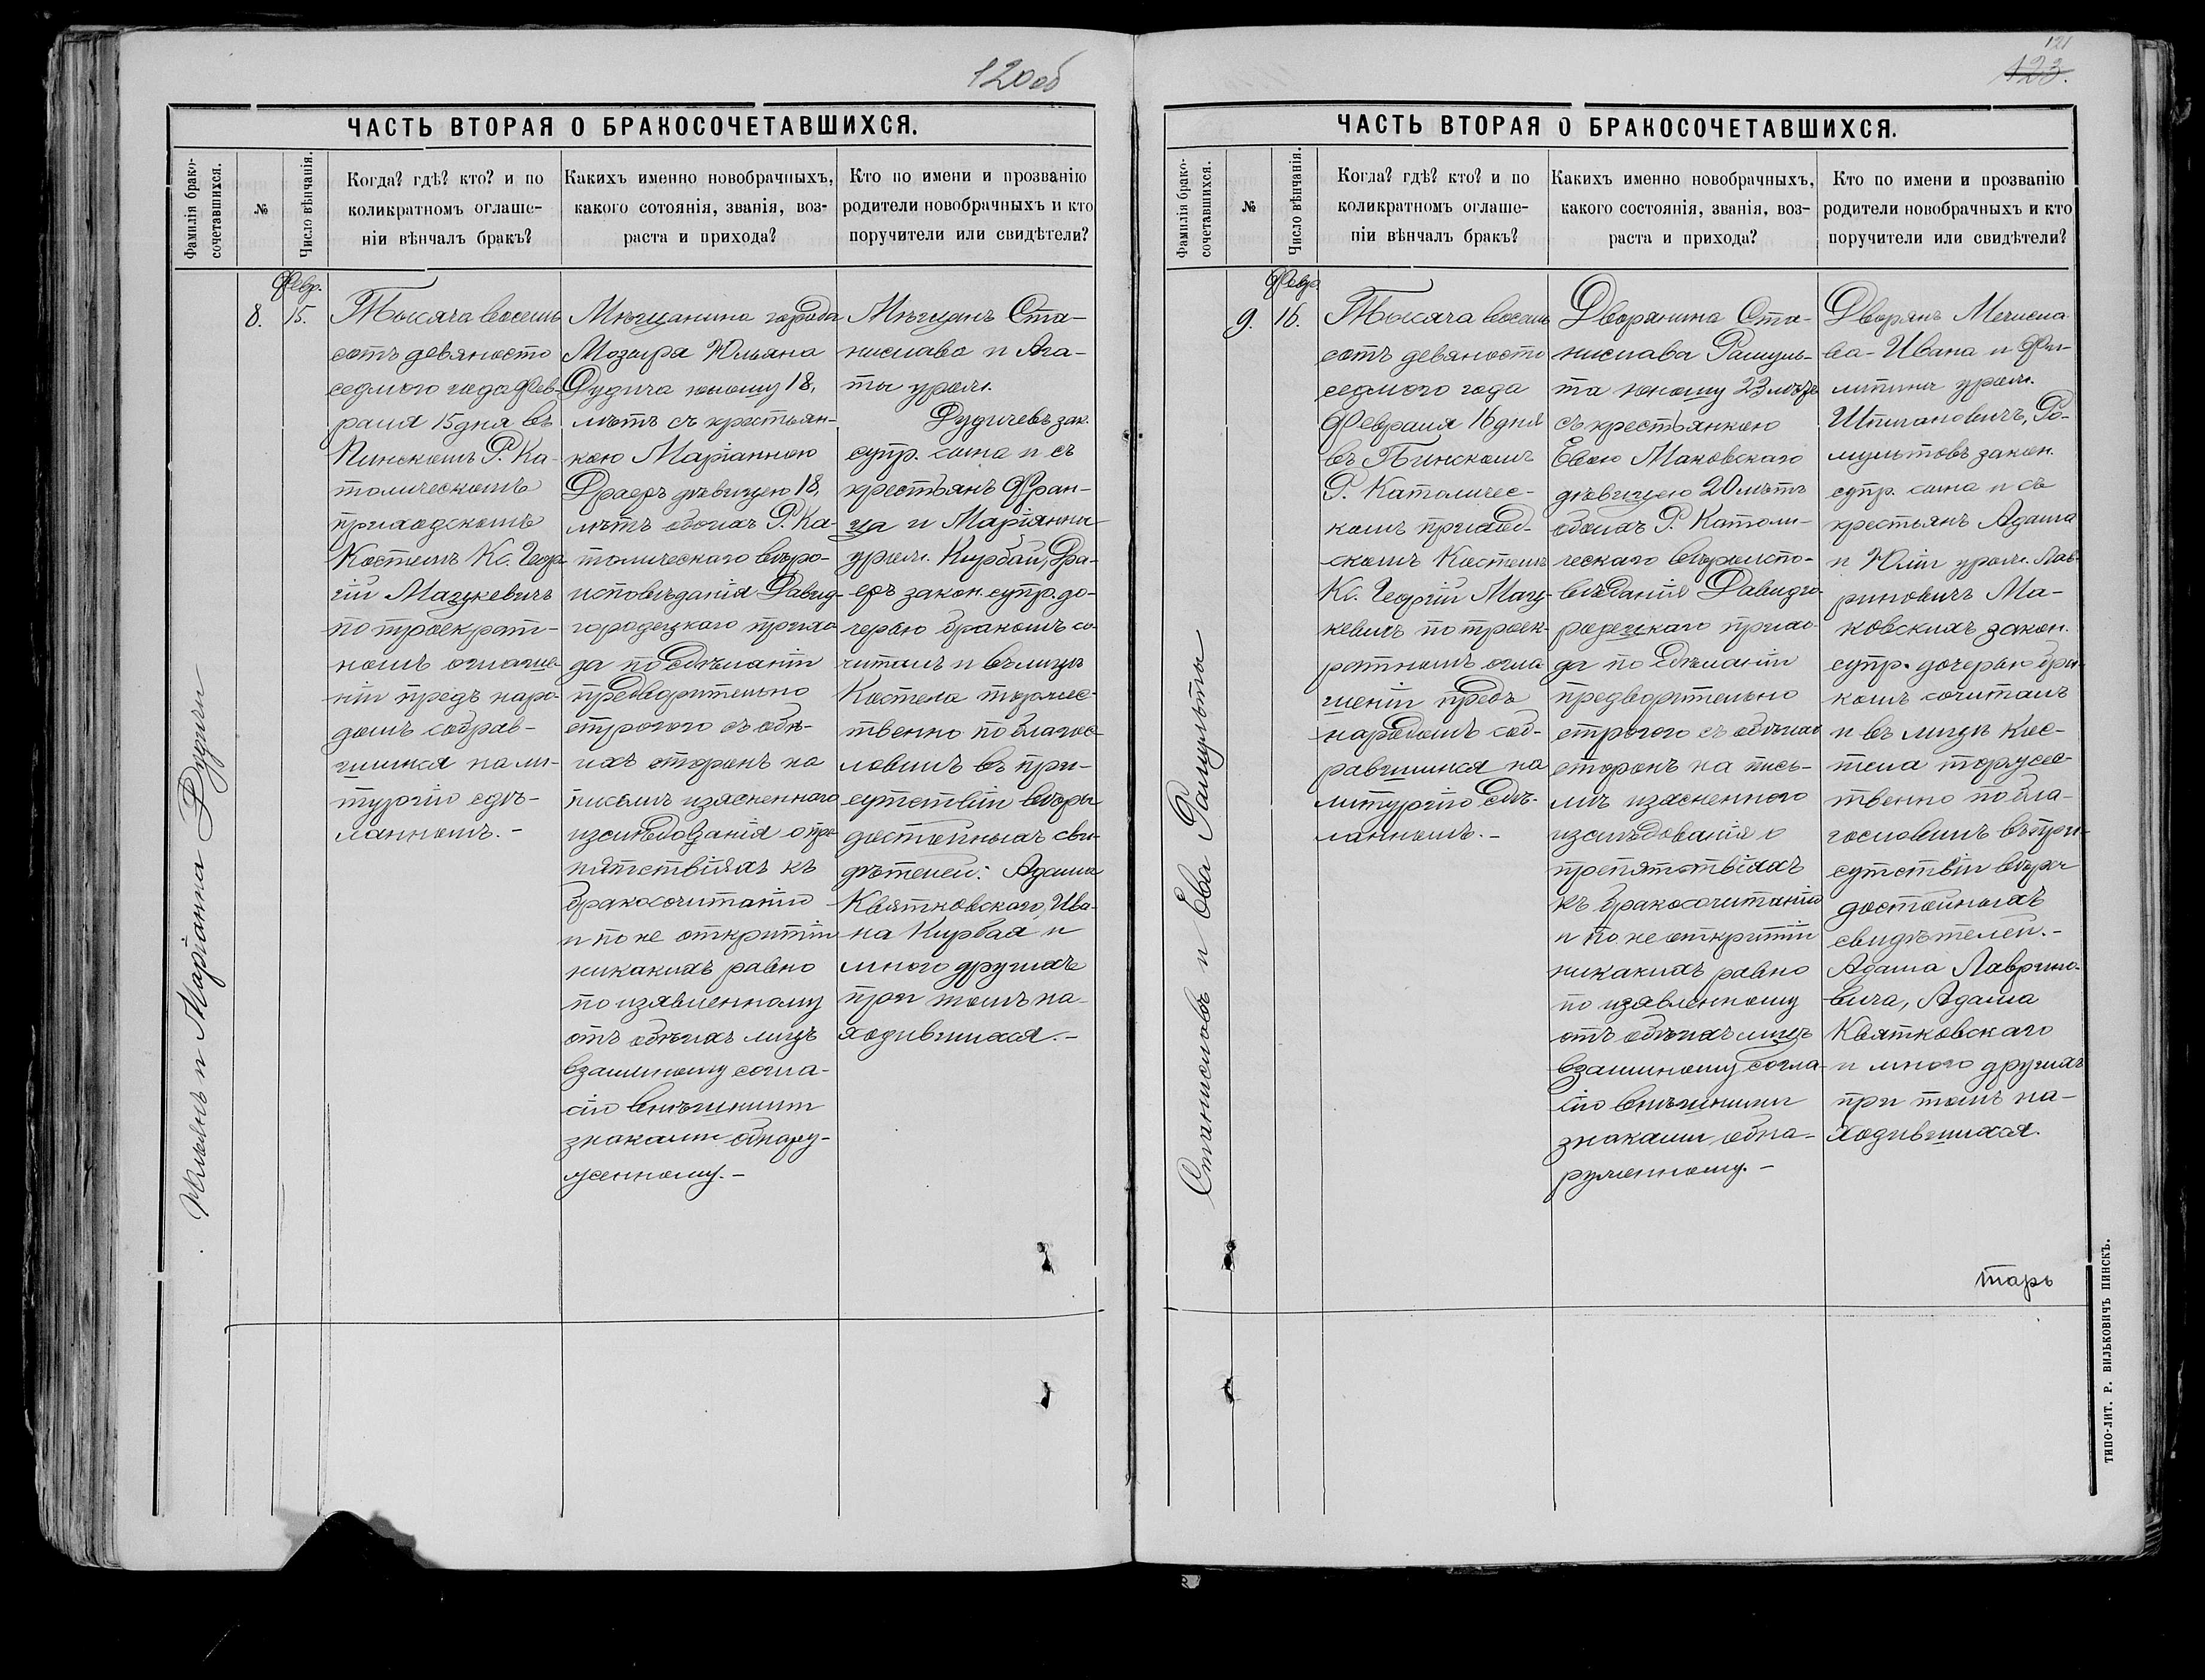 120об
ЧАСТЬ ВТОРАЯ О БРАКОСОЧЕТАВШИХСЯ.
Фамилія брако-
сочетавшихся.
№
Число вѣнчанія.
Когда? гдѣ? кто? и по
коликратномъ оглаше-
ніи вѣнчалъ бракъ?
Какихъ именно новобрачныхъ,
какого сотоянія, званія, воз-
раста и прихода?
Кто по имени и прозванію
родители новобрачныхъ и кто
поручители или свидѣтели?
Юльянъ и Маріанна Дудичи
8.
Февр.
15.
Тысяча восемь
сотъ девяносто
седмого года Фев-
раля 15 дня въ
Пинскомъ Р. Ка-
толическомъ
приходскомъ
Костелѣ Кс. Геор
гій Мацкевичъ
по троекрат-
номъ оглаше-
ніи предъ наро-
домъ собрав-
шимся на ли-
тургію сдѣ-
ланномъ. -
Мѣщанина города
Мозыря Юльяна
Дудича юношу 18,
лѣтъ съ крестьян-
кою Маріанною
Драеръ дѣвицею 18,
лѣтъ обоихъ Р. Ка-
толическаго вѣро-
исповѣданія Давид-
городецкаго прихо
да по сдѣланіи
предварительно
строгого съ обѣ-
ихъ сторонъ на
письмѣ изясненного
изслѣдованія о пре
пятствіяхъ къ
бракосочитанію
и по не откритіи
никакихъ равно
по изявленному
отъ обѣихъ лицъ
взаимному согла-
сію внѣшними
знаками обнару-
женному. -
Мѣщанъ Ста-
нислава и Ага-
ты урож.
Дудичевъ зак.
супр. сына и съ
крестьянъ Фран-
ца и Маріанны
урож. Курбай, Дра-
еръ закон. супр. до-
черью бракомъ со-
читалъ и въ лицѣ
Костела торжес-
твенно поблагос
ловилъ въ при-
сутствіи вѣры
достойныхъ сви-
дѣтелей: Адама
Квятковского, Ива-
на Курбая и
много другихъ
при томъ на-
ходившихся. -
121
123.
ЧАСТЬ ВТОРАЯ О БРАКОСОЧЕТАВШИХСЯ.
Фамилія брако-
сочетавшихся.
№
Число вѣнчанія.
Когла? гдѣ? кто? и по
коликратномъ оглаше-
ніи вѣнчалъ бракъ?
Какихъ именно новобрачныхъ,
какого состоянія, званія, воз-
раста и прихода?
Кто по имени и прозванію
родители новобрачныхъ и кто
поручители или свидѣтели?
Станиславъ и Ева Рамульты
9.
Февр
16.
Тысяча восемь
сотъ девяносто
седмого года
Февраля 16 дня
въ Пинскомъ
Р. Католичес-
комъ приход-
скомъ Костелѣ
Кс. Георгій Мац-
кевичъ по троек-
ратномъ огла
шеніи предъ
народомъ соб-
равшимся на
литургію сдѣ-
ланномъ. -
Дворянина Ста-
нислава Рамуль-
та юношу 23 лѣтъ
съ крестьянкою
Евою Маковскаго
дѣвицею 20 лѣтъ
обоихъ Р. Католи-
ческаго вѣроиспо-
вѣданія Давидго
родецкаго прихо-
да по сдѣланіи
предворительно
строгого съ обѣихъ
сторонъ на пись-
мѣ изясненного
изслѣдованія о
препятствіяхъ
къ бракосочитанію
и по не откритіи
никакихъ равно
по изявленному
отъ обѣихъ лицъ
взаимному согла-
сію внѣшними
знаками обна-
руженному. -
Дворянъ Мечисла
ва-Ивана и
урож.
Ра-
мультовъ закон.
супр. сына и съ
крестьянъ Адама
и Юліи урож. Лав-
риновичъ Ма-
ковскихъ закон.
супр. дочерью бра-
комъ сочиталъ
и въ лицѣ Кос-
тела торжес-
твенно побла-
гословилъ въ при-
сутствіи вѣры
достойныхъ
свидѣтелей. -
Адама Лаврино-
вича, Адама
Квятковскаго
и много другихъ
при томъ на-
ходившихся.
тарь
ТИПО-ЛИТ. Р. ВИЛЬКОВИЧЪ ПИНСКЪ.